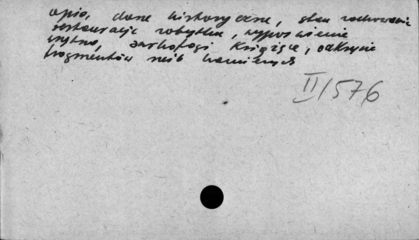 opis, dane historyczne, stan zachowania
restauracje zabytku, wyposażenie
wnętrza, sarkofagi Książęce, odkrycie
fragmentów rzeźb kamiennych
II/576